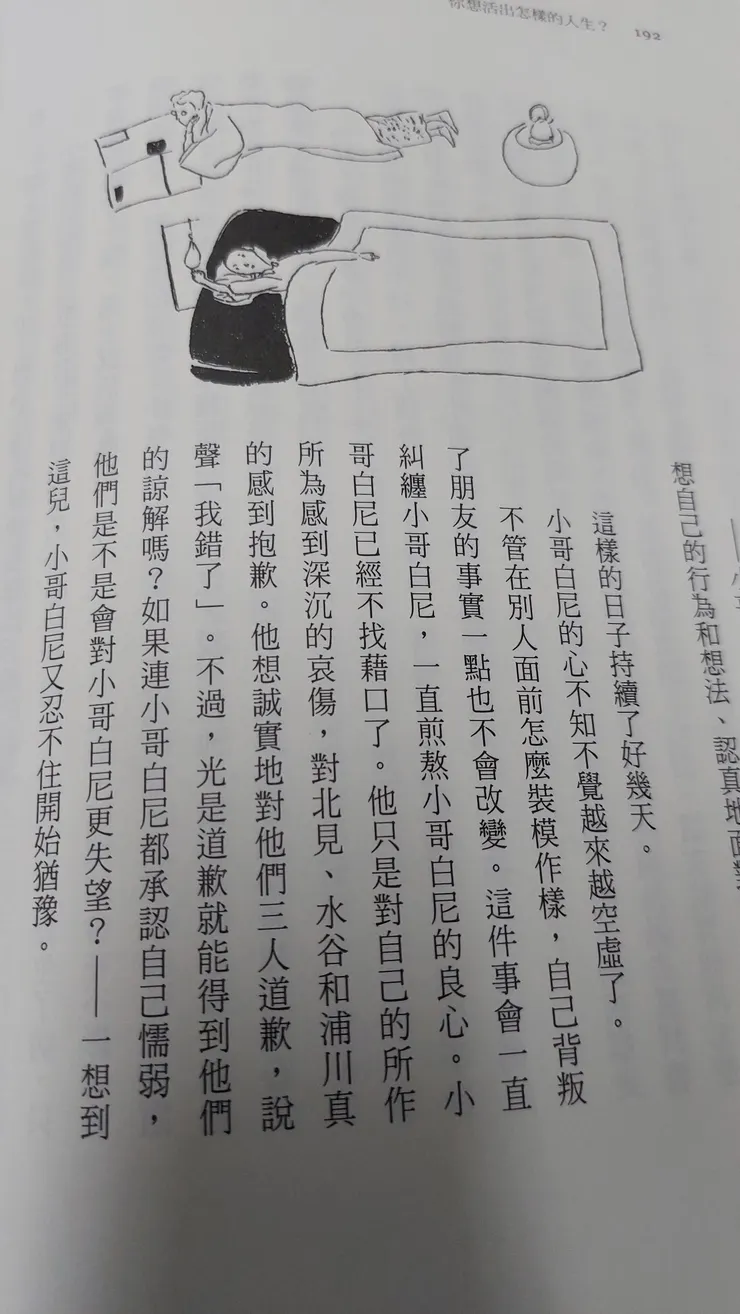 你想活出怎樣的人生？ 192
想自己的行為和想法、認真地面對
這樣的日子持續了好幾天。
小哥白尼的心不知不覺越來越空虛了。
不管在別人面前怎麼裝模作樣，自己背叛
了朋友的事實一點也不會改變。這件事會一直
糾纏小哥白尼，一直煎熬小哥白尼的良心。小
哥白尼已經不找藉口了。他只是對自己的所作
所為感到深沉的哀傷，對北見、水谷和浦川真
的感到抱歉。他想誠實地對他們三人道歉，說
聲「我錯了」。不過，光是道歉就能得到他們
的諒解嗎？如果連小哥白尼都承認自己懦弱，
他們是不是會對小哥白尼更失望？——一想到
這兒，小哥白尼又忍不住開始猶豫。